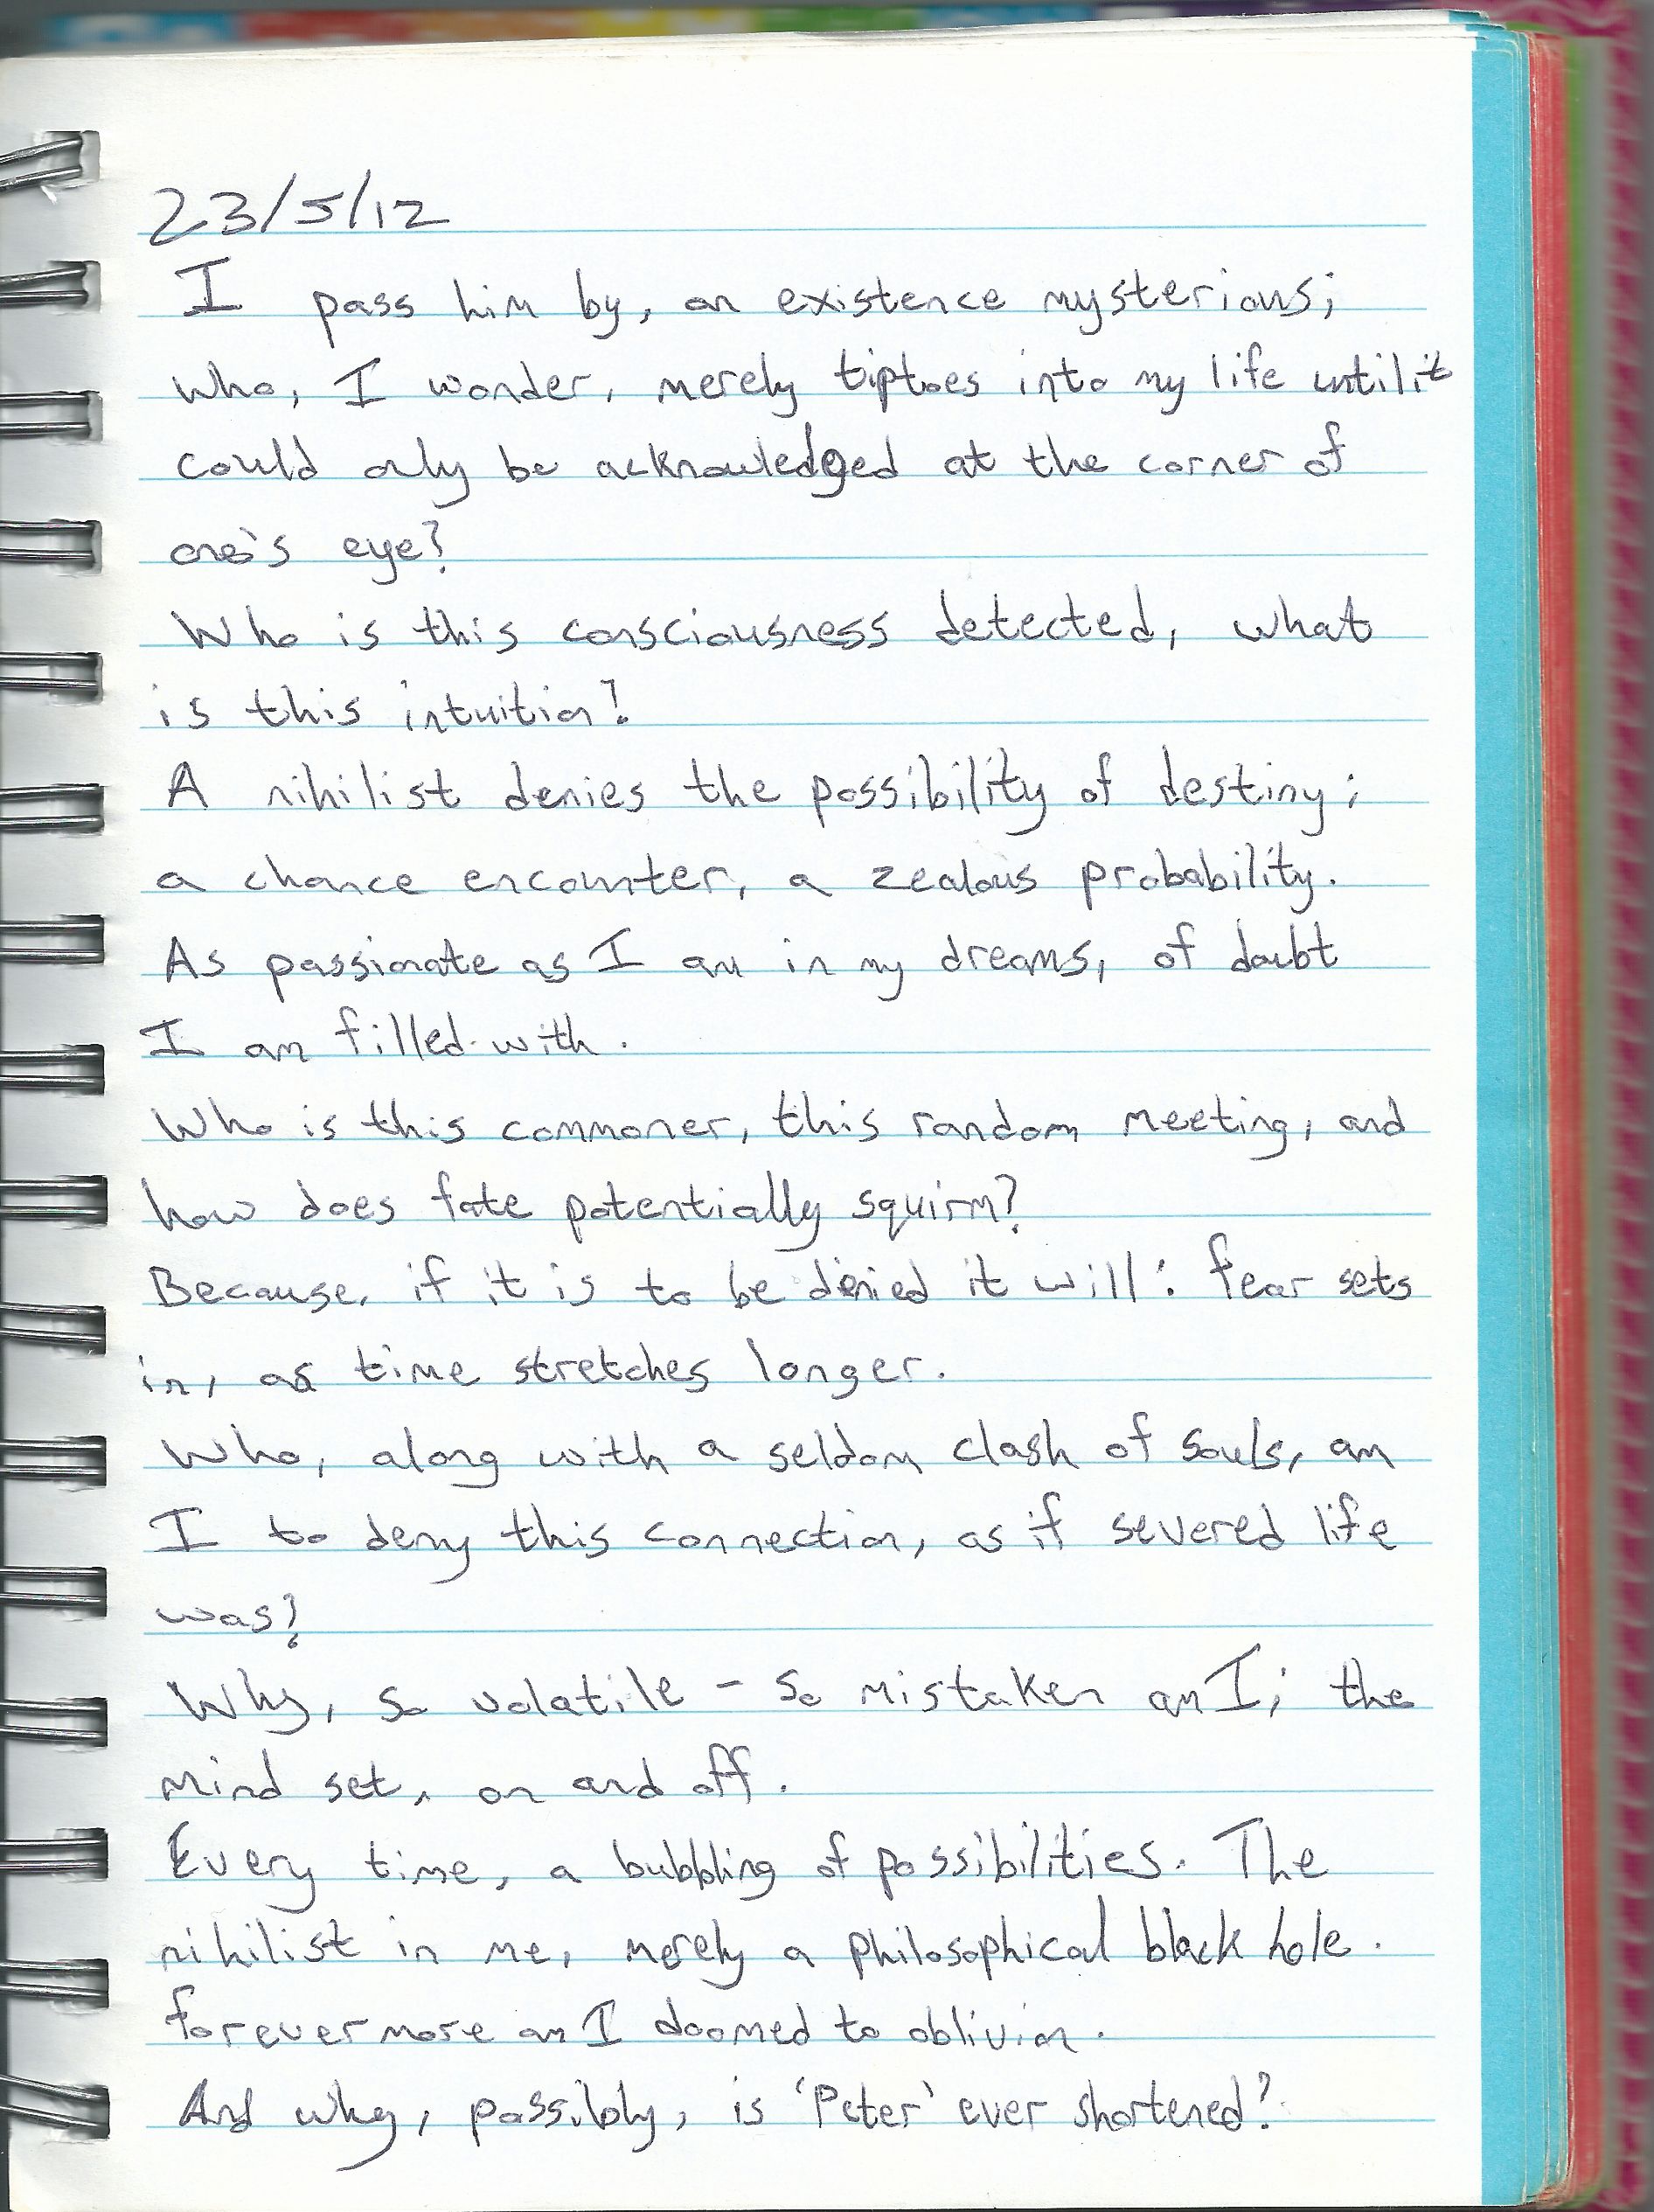 23/5/12
I pass him by, an existence mysterious;
Who, I wonder, merely tiptoes into my life until it
could only be acknowledged at the corner of
one's eye?
Who is this consciousness detected, what
is this intuition?
A nihilist denies the possibility of destiny;
a chance encounter, a zealous probability.
As passionate as I am in my dreams, of doubt
I am filled with.
Who is this commoner, this random meeting, and
how does fate potentially squirm?
Because, if it is to be denied it will: fear sets
in, as time stretches longer.
Who, along with a seldom clash of souls, am
I to deny this connection, as if severed life
was?
Why, so volatile - so mistaken am I; the
mind set, on and off.
Every time, a bubbling of possibilities. The
nihilist in me, merely a philosophical black hole.
forevermore am I doomed to oblivion.
And why, possibly, is 'Peter' ever shortened?